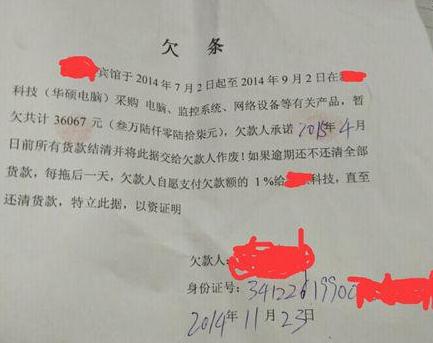 欠 条
宾馆于 2014 年 7 月 2 日起至 2014 年 9 月 2 日在
科技（华硕电脑）采购 电脑、监控系统、网络设备等有关产品，暂
欠共计 36067 元（叁万陆仟零陆拾柒元），欠款人承诺 2015 年 4 月
日前所有货款结清并将此据交给欠款人作废！如果逾期还不还清全部
货款，每拖后一天，欠款人自愿支付欠款额的 1%给 科技，直至
还清货款，特立此据，以资证明
欠款人：
身份证号：3412261990
2014 年 11 月 23 日